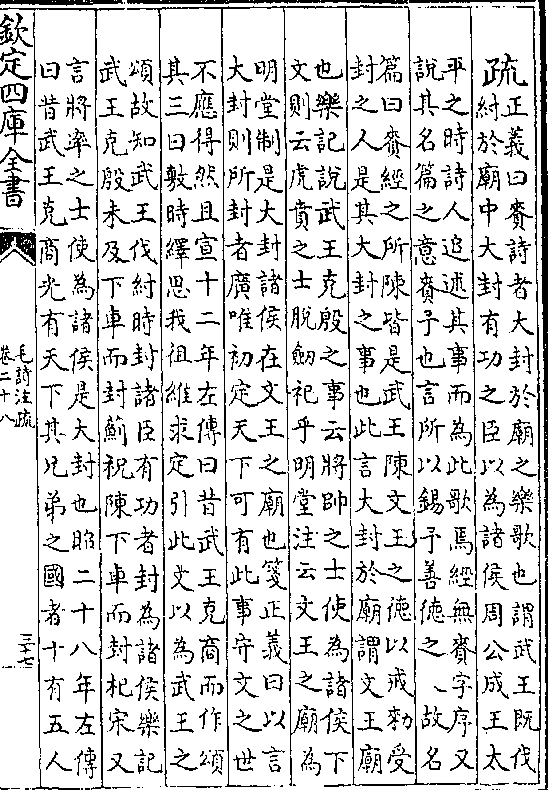 疏正義曰賚詩者大封於廟之樂歌也謂武王既伐
紂於廟中大封有功之臣以為諸侯周公成王太
平之時詩人追述其事而為此歌焉經無賚字序又
說其名篇之意賚予也言所以錫予善德之、故名
篇曰賚經之所陳皆是武王陳文王之德以戒勑受
封之人是其大封之事也此言大封於廟謂文王廟
也樂記說武王克殷之事云將帥之士使為諸侯下
文則云虎賁之士脫劒祀乎明堂注云文王之廟為
明堂制是大封諸侯在文王之廟也箋正義曰以言
大封則所封者廣唯初定天下可有此事守文之世
不應得然且宣十二年左傳曰昔武王克商而作頌
其三曰敷時繹思我祖維求定引此文以為武王之
頌故知武王伐紂時封諸臣有功者封為諸侯樂記
武王克殷未及下車而封薊祝陳下車而封杞宋又
言將率之士使為諸侯是大封也昭二十八年左傳
曰昔武王克商光有天下其兄弟之國者十有五人
欽定四庫全書
毛詩注疏
卷二十八
三十七